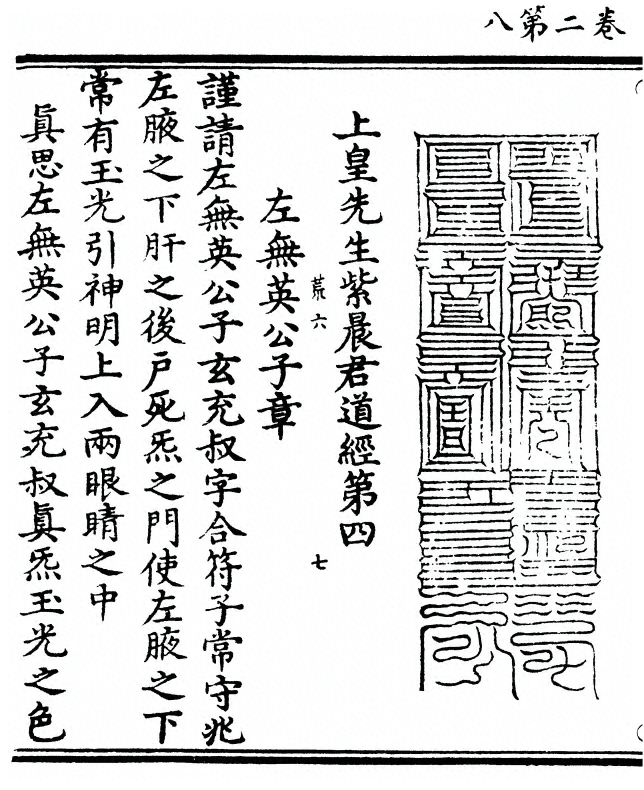 卷二第八
上皇先生紫晨君道經第四
荒六
七
左無英公子章
謹請左無英公子玄充叔字合符子常守兆
左腋之下肝之後戶死炁之門使左腋之下
常有玉光引神明上入兩眼睛之中
真思左無英公子玄充叔真炁玉光之色